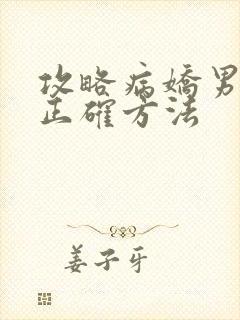 攻略病嬌男
正確方法
姜子牙